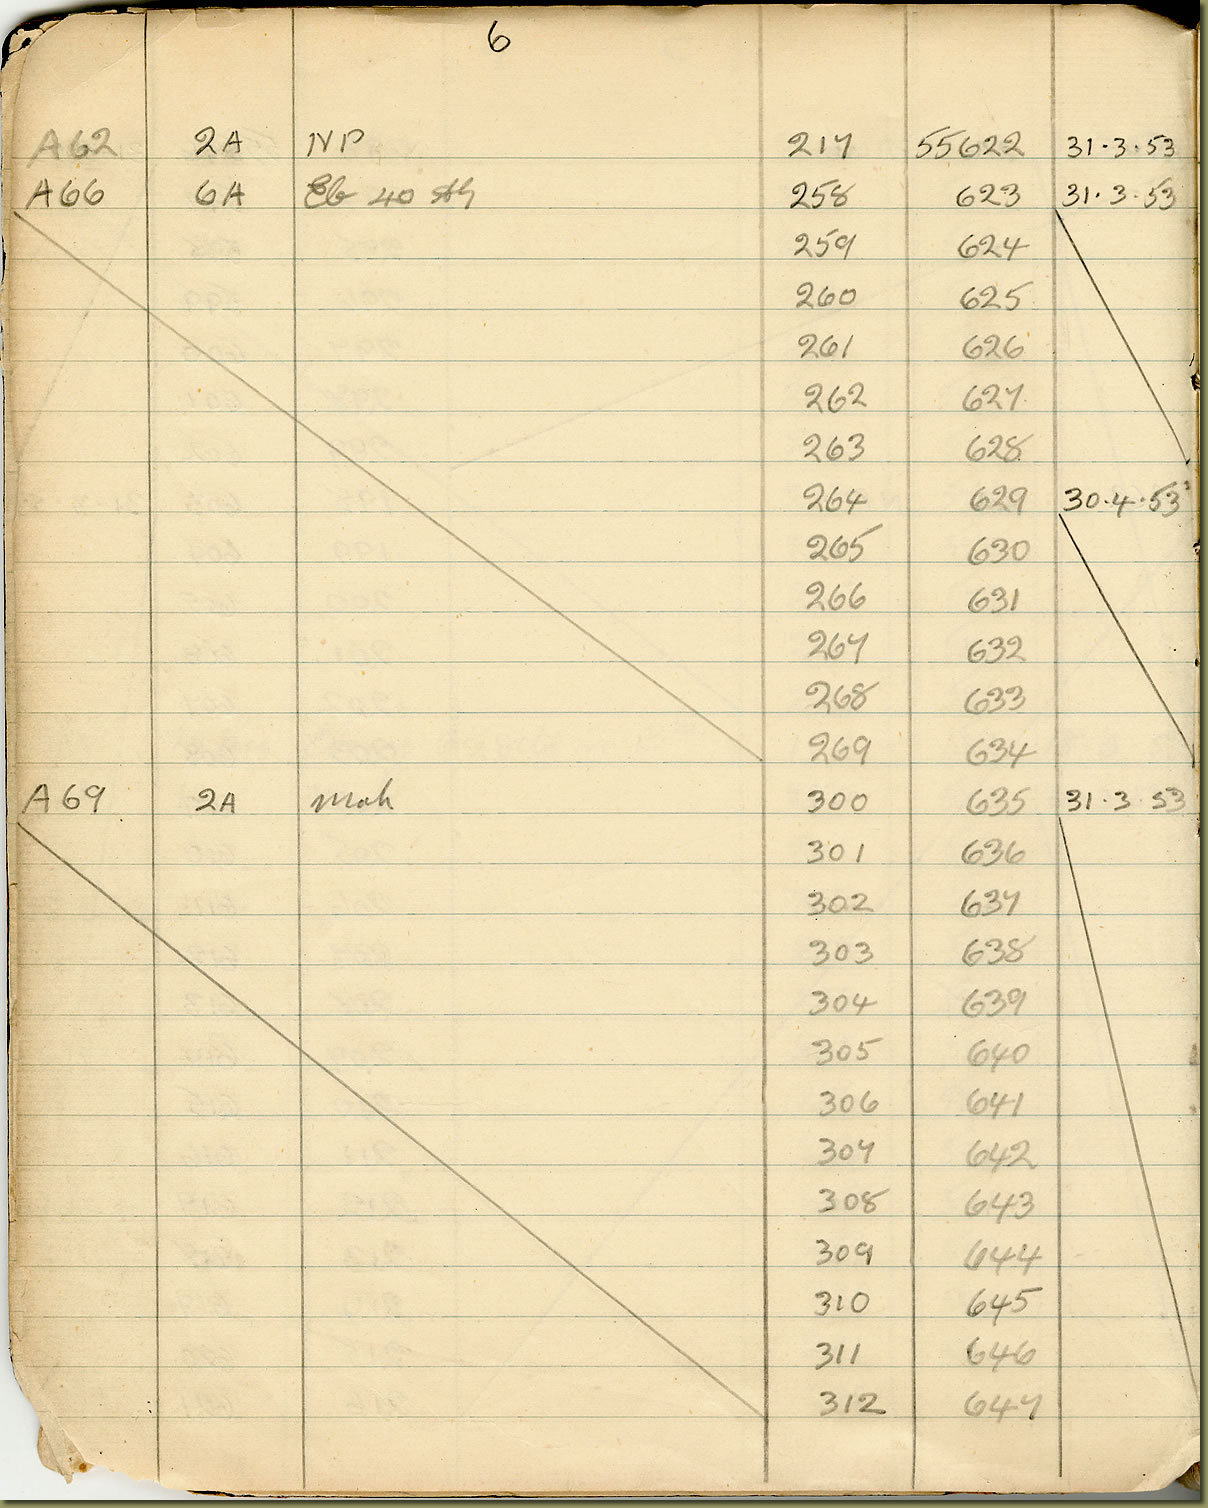 6
A62 2A NP 217 55622 31·3·53
A66 6A 40 258 623 31·3·53
259 624
260 625
261 626
262 627
263 628
264 629 30·4·53
265 630
266 631
267 632
268 633
269 634
A69 2A Mah 300 635 31·3 53
301 636
302 637
303 638
304 639
305 640
306 641
307 642
308 643
309 644
310 645
311 646
312 647